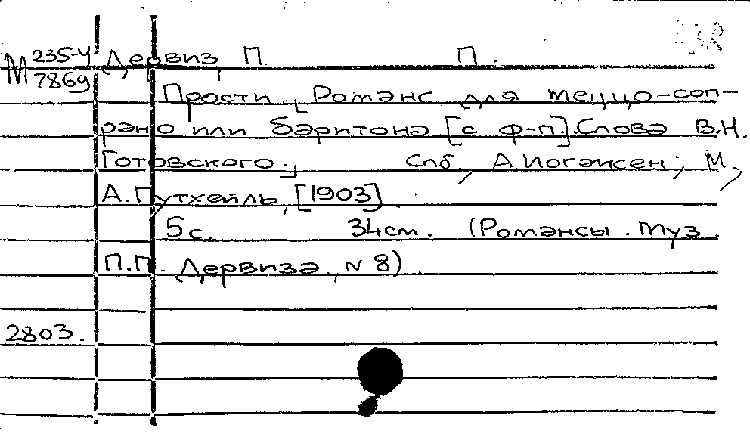 М 235-4 Дервиз, П. П.
7869
Прости. [Романс для меццо-соп-
рано или баритона [с ф-п]. Слова В.Н.
Готовского.] Спб, А. Иогансен; М.,
А. Гутхейль, [1903].
5 с. 34 см. (Романсы. Муз.
П.П. Дервиза, N 8)
2803.